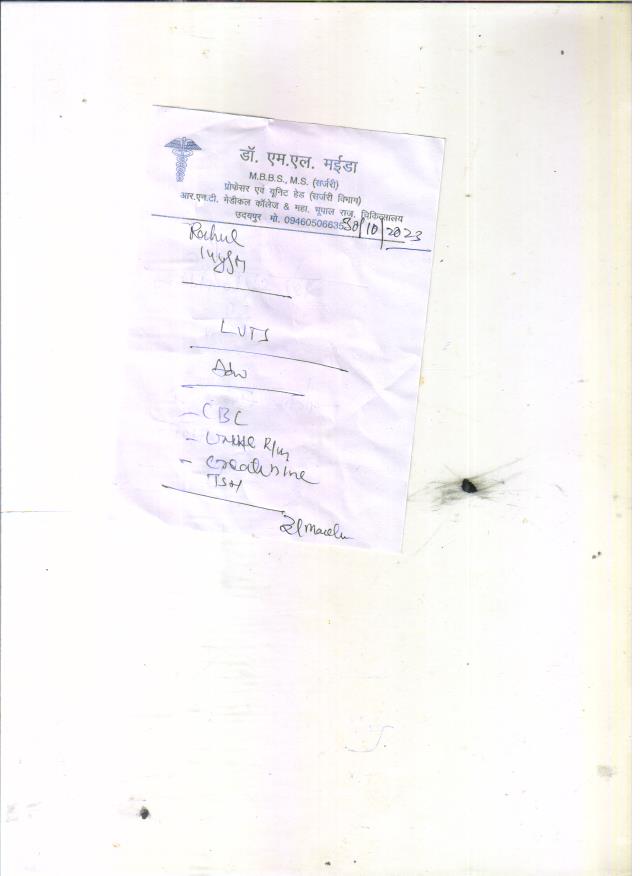 डॉ. एम.एल. मईडा
M.B.B.S., M.S. (सर्जरी)
प्रोफेसर एवं यूनिट हेड (सर्जरी विभाग)
आर.एन.टी. मेडीकल कॉलेज & महा. भूपाल राज. चिकित्सालय
उदयपुर मो. 09460506635 30/10/2023
Rahul
LUTS
Adv
- CBC
- Urine R/M
- Creatinine
TSH